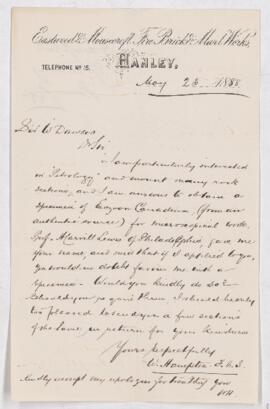 Eastwood & Mousecroft Fire Brick & Marl Works,
TELEPHONE No 15.
HANLEY,
May 23 1888
Sir W Dawson
Dr Sir
I am particularly interested
in Petrology and mount many rock
sections, and I am anxious to obtain a
specimen of Eozoon Canadense, (from an
authentic source) for microscopical work,
Prof. Lewis of Philadelphia, gave me
your name, and said that if I applied to you,
you would no doubt favour me with a
specimen. Would you kindly do so
I should be only
too pleased to send you a few sections
of the same, in return for your kindness
Yours respectfully
W. Hampton F.G.S.
Kindly accept my apologies for troubling you
WH